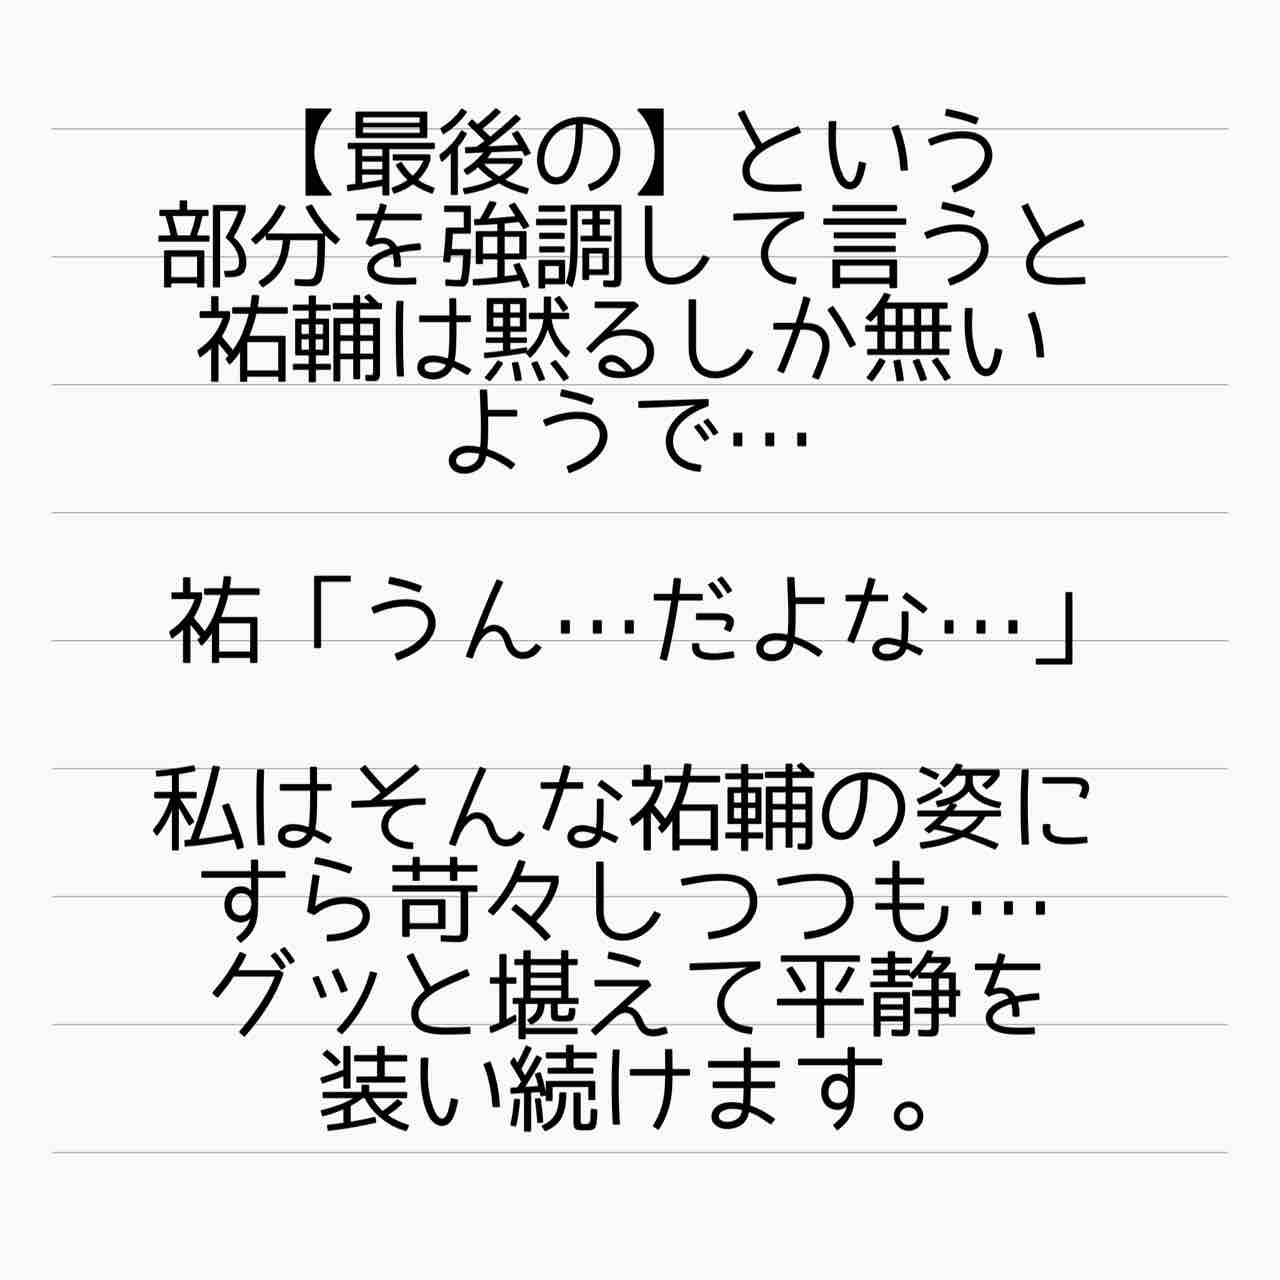 【最後の】という
部分を強調して言うと
祐輔は黙るしか無い
ようで…
祐「うん…だよな…」
私はそんな祐輔の姿に
すら苛々しつつも…
グッと堪えて平静を
装い続けます。